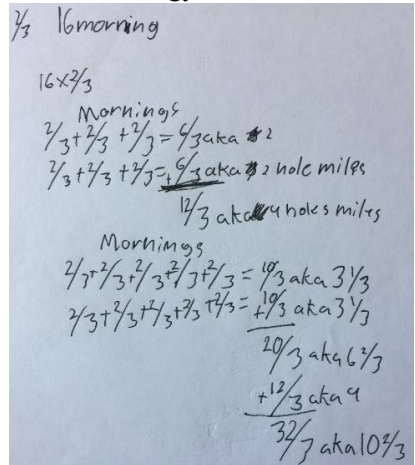 2/3 16 morning
16x2/3
Mornings
2/3+2/3+2/3=6/3 aka 2
2/3+2/3+2/3=+6/3 aka 2 hole miles
12/3 aka 4 holes miles
Mornings
2/3+2/3+2/3+2/3+2/3=10/3 aka 3 1/3
2/3+2/3+2/3+2/3+2/3=+10/3 aka 3 1/3
20/3 aka 6 2/3
+12/3 aka 4
32/3 aka 10 2/3